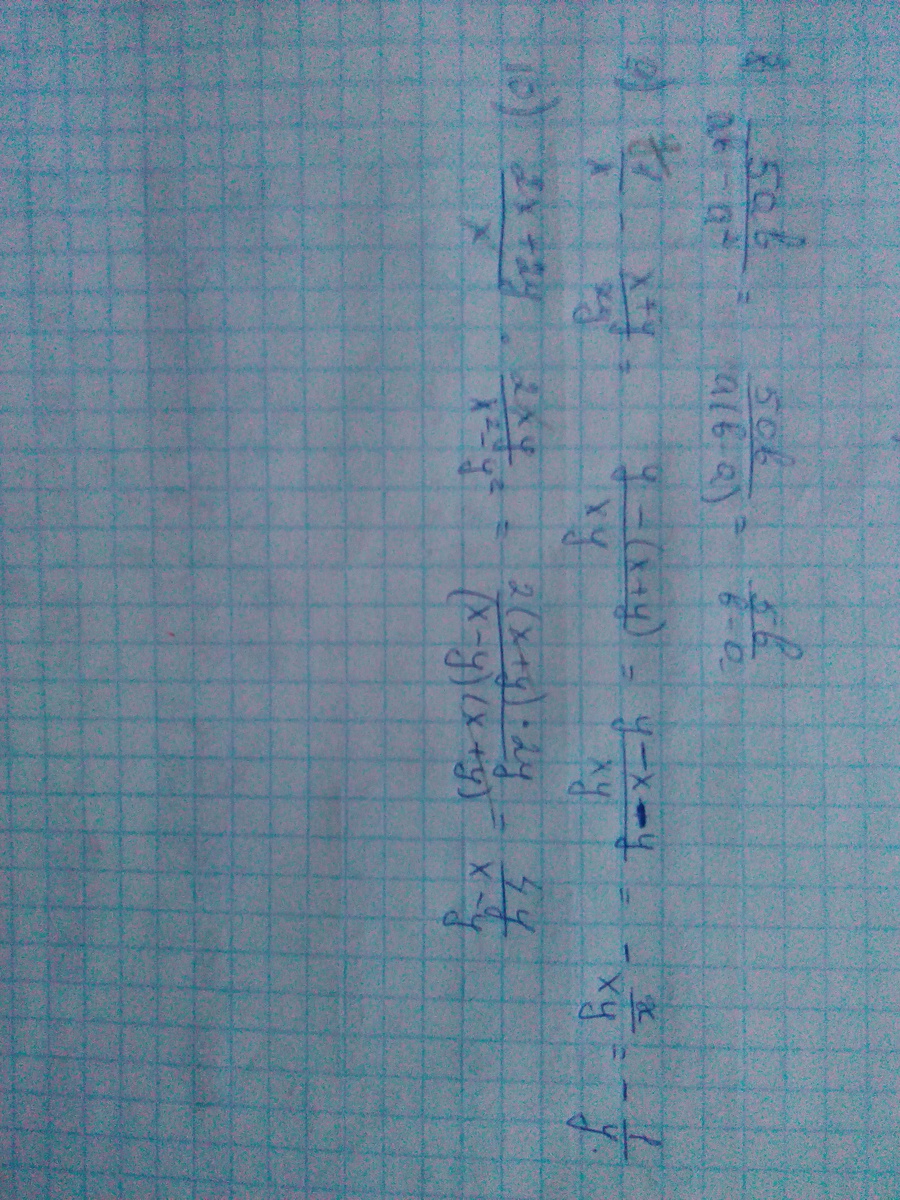 8) 5ab/(ab - a²) = 5ab/(a(b-a)) = 5b/(b-a)
9) 1/x - (x+y)/(xy) = (y-(x+y))/(xy) = (y-x-y)/(xy) = - x/(xy) = - 1/y
10) (2x+2y)/x · 2xy/(x²-y²) = (2(x+y)·2y)/((x-y)(x+y)) = 4y/(x-y)